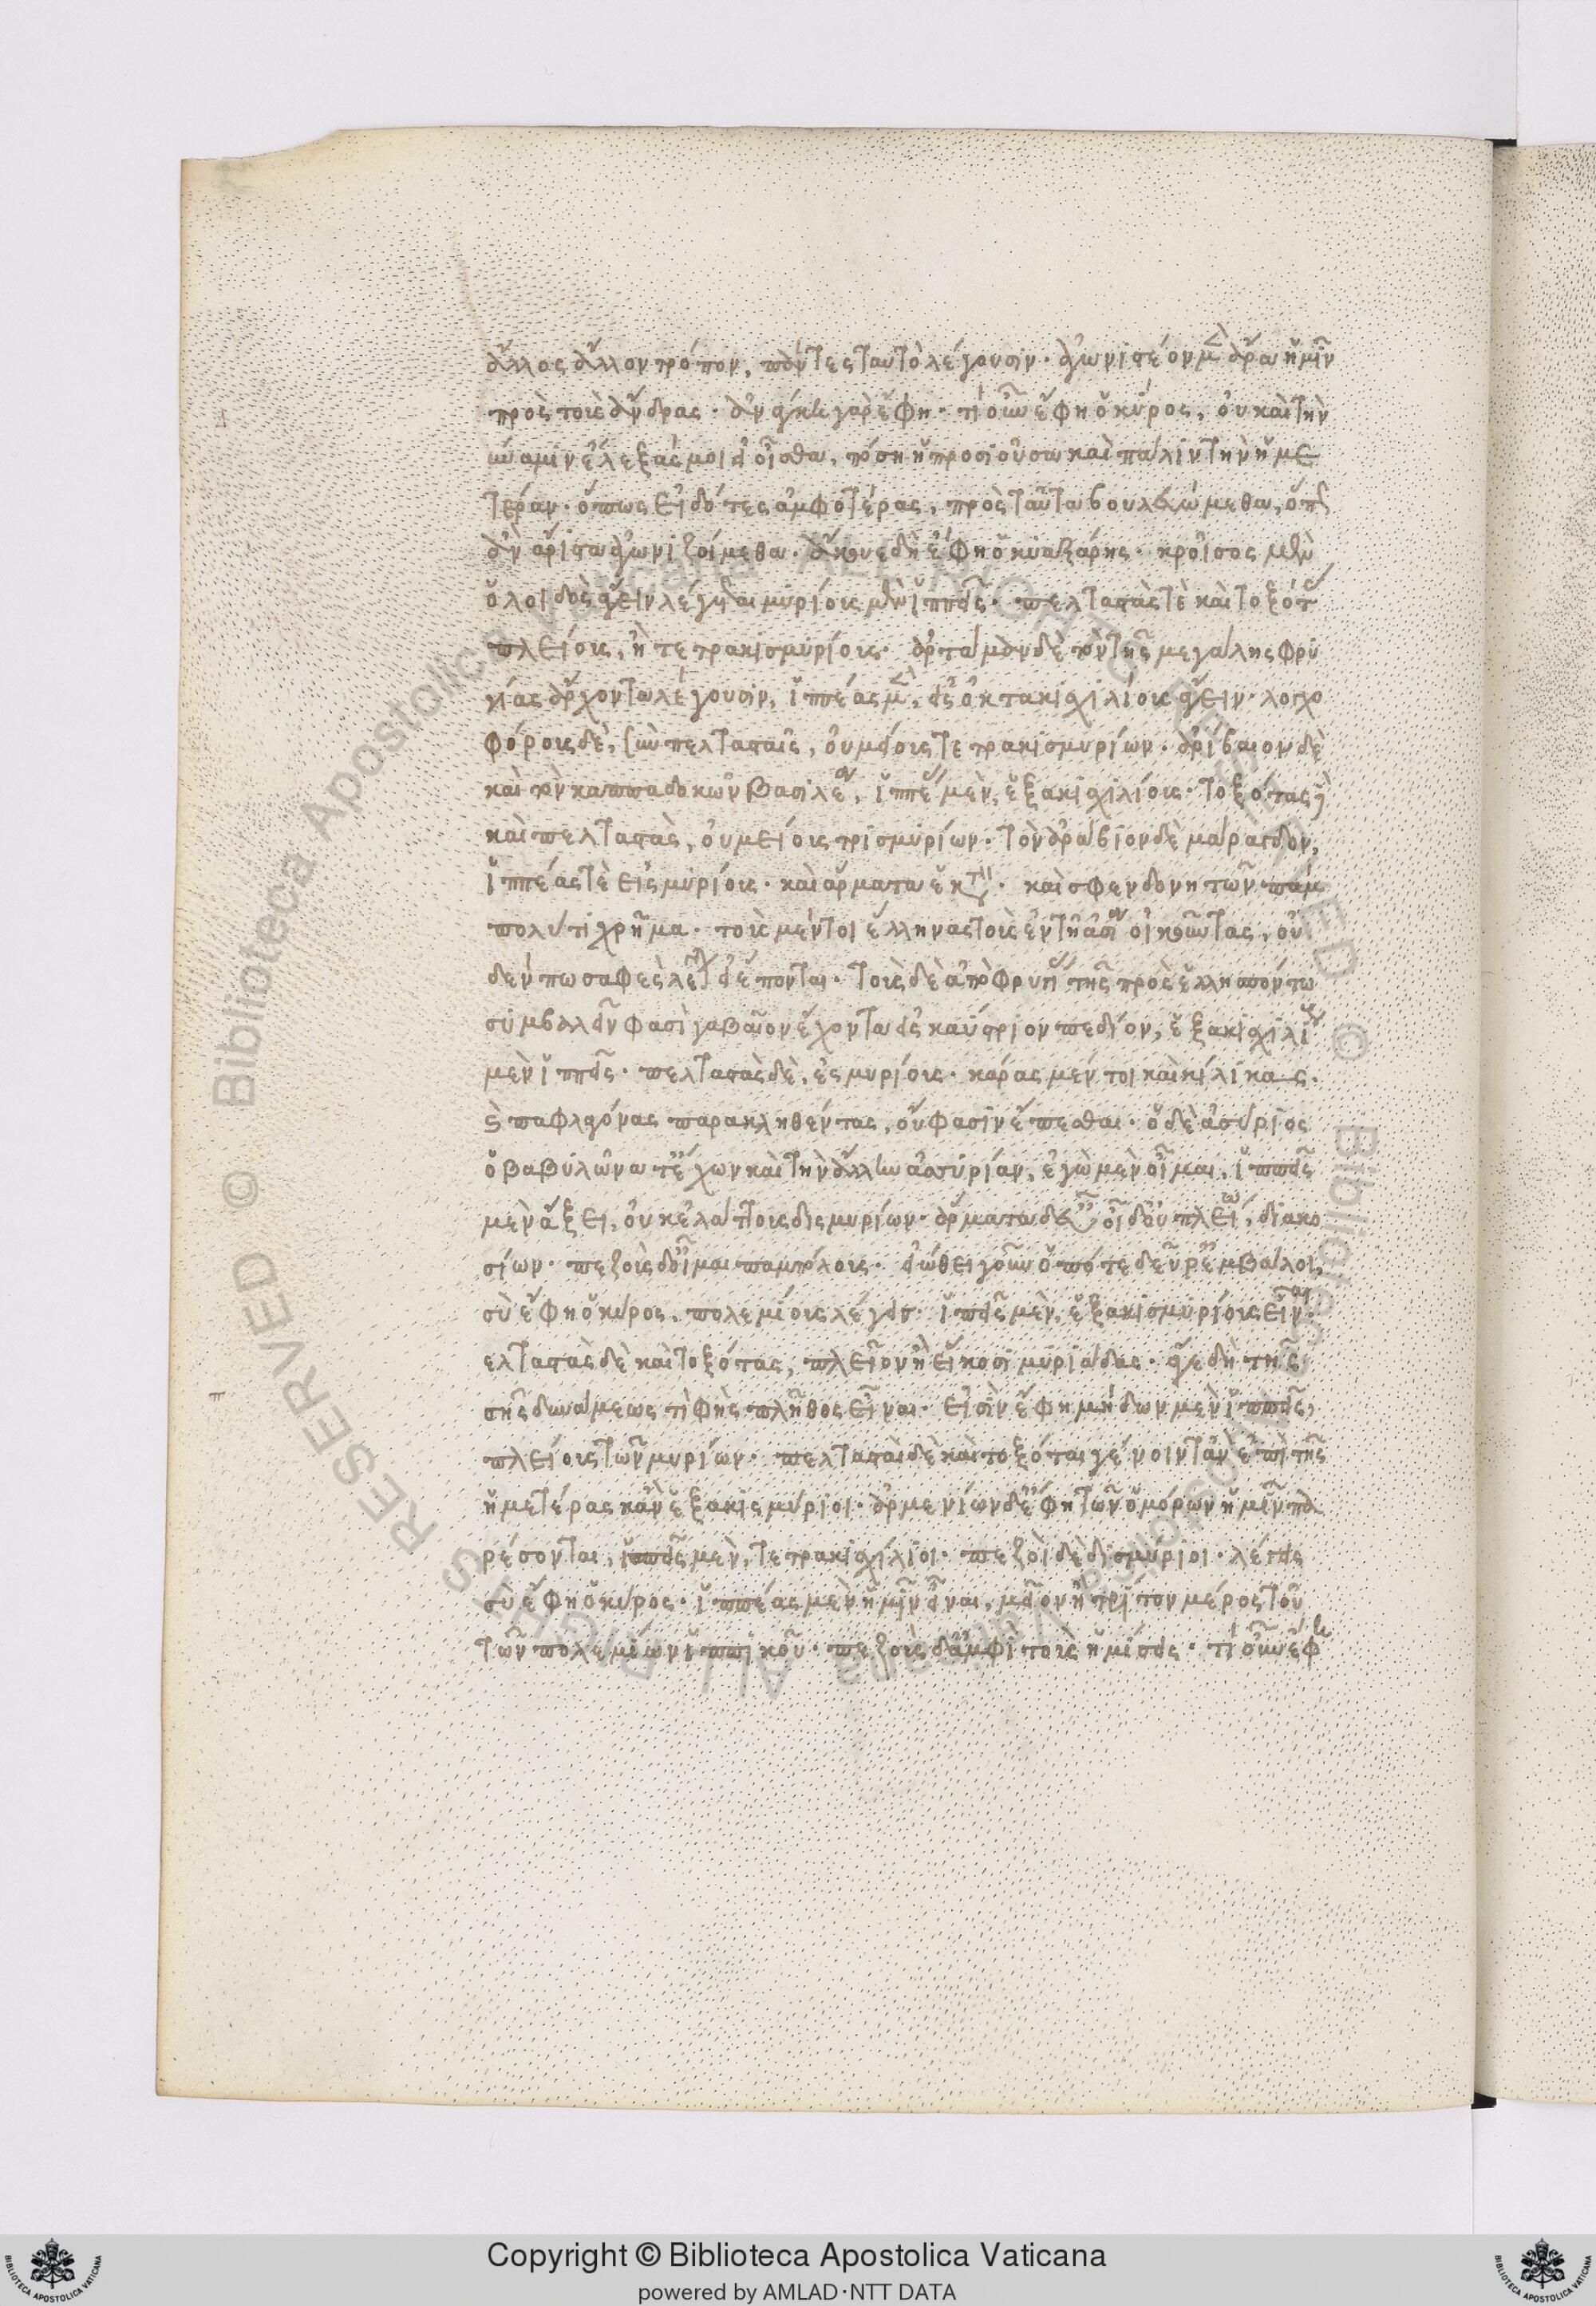 ἄλλος ἄλλον τρόπον, πάντες ταυτὸ λέγουσιν· ἀγωνιστέον μὲν ἄρα ἡμῖν
πρὸς τοὺς ἄνδρας· ἀνάγκη γὰρ ἔφη· τί οὖν ἔφη ὁ κύρος, οὐ καὶ τὴν
δύναμιν ἔλεξάς μοι εἰ οἶσθα, πόση ἡ προσιοῦσα καὶ πάλιν τὴν ἡμε
τέραν· ὅπως εἰδότες ἀμφοτέρας, πρὸς ταῦτα βουλευώμεθα, ὅπως
ἂν ἄριστα ἀγωνιζοίμεθα· ἄκουε δὴ ἔφη ὁ κυαξάρης· κροῖσος μὲν
ὁ λυδὸς ἄγειν λέγεται μυρίους μὲν ἱππεῖς· πελταστὰς τὲ καὶ τοξότας
πλείους, ἢ τετρακισμυρίους· ἀρτάμαν δὲ τὸν τῆς μεγάλης φρυ
γίας ἄρχοντα λέγουσιν, ἱππέας μὲν, εἰς ὀκτακισχιλίους ἄγειν· λογχο
φόρους δὲ, σὺν πελτασταῖς, οὐ μείους τετρακισμυρίων· ἀρίβαιον δὲ
καὶ τὸν καππαδοκῶν βασιλέα, ἱππέας μὲν, ἑξακισχιλίους· τοξότας δὲ
καὶ πελταστὰς, οὐ μείους τρισμυρίων· τὸν ἀράβιον δὲ μάραγδον,
ἱππέας τὲ εἰς μυρίους· καὶ ἅρματα ἑκατὸν· καὶ σφενδονητῶν πάμ
πολύ τι χρῆμα· τοὺς μέντοι ἕλληνας τοὺς ἐν τῇ ἀσίᾳ οἰκοῦντας, οὐ
δέν πω σαφὲς λέγεται εἰ ἕπονται· τοὺς δὲ ἀπὸ φρυγίας τῆς πρὸς ἑλλησπόντω
συμβαλεῖν φασὶ γαβαῖον ἔχοντα εἰς καΰστριον πεδίον, ἑξακισχιλίους
μὲν ἱππεῖς· πελταστὰς δὲ, εἰς μυρίους· κάρας μέν τοι καὶ κίλικας.
καὶ παφλαγόνας παρακληθέντας, οὔ φασιν ἕπεσθαι· ὁ δὲ ἀσύριος
ὁ βαβυλῶνα τ' ἔχων καὶ τὴν ἄλλην ἀσσυρίαν, ἐγὼ μὲν οἶμαι, ἱππεῖς
μὲν ἄξει, οὐκ ἐλάττους δισμυρίων· ἅρματα δ' εὖ οἶδ' οὐ πλείω, διακο
σίων· πεζοὺς δ' οἶμαι παμπόλους· εἰώθει γοῦν ὁπότε δεῦρ' ἐμβάλοι,
σὺ ἔφη ὁ κύρος, πολεμίους λέγεις· ἱππεῖς μὲν, ἑξακισμυρίους εἶναι·
ελταστὰς δὲ καὶ τοξότας, πλεῖον ἢ εἴκοσι μυριάδας· ἄγε δὴ τῆς
σῆς δυνάμεως τί φὴς πλῆθος εἶναι· εἰσὶν ἔφη μήδων μὲν ἱππεῖς,
πλείους τῶν μυρίων· πελτασταὶ δὲ καὶ τοξόται γένοιντ' ἂν ἐπὶ τῆς
ἡμετέρας κἂν ἑξακισμύριοι· ἀρμενίων δ' ἔφη τῶν ὁμόρων ἡμῖν πα
ρέσονται, ἱππεῖς μὲν, τετρακισχίλιοι· πεζοὶ δὲ δισμύριοι· λέγεις
σὺ ἔφη ὁ κύρος· ἱππέας μὲν ἡμῖν εἶναι, μεῖον ἢ τρίτον μέρος τοῦ
τῶν πολεμίων ἱππικοῦ· πεζοὺς δ' ἀμφὶ τοὺς ἡμίσεις· τί οὖν ἔφη
Copyright © Biblioteca Apostolica Vaticana
powered by AMLAD·NTT DATA